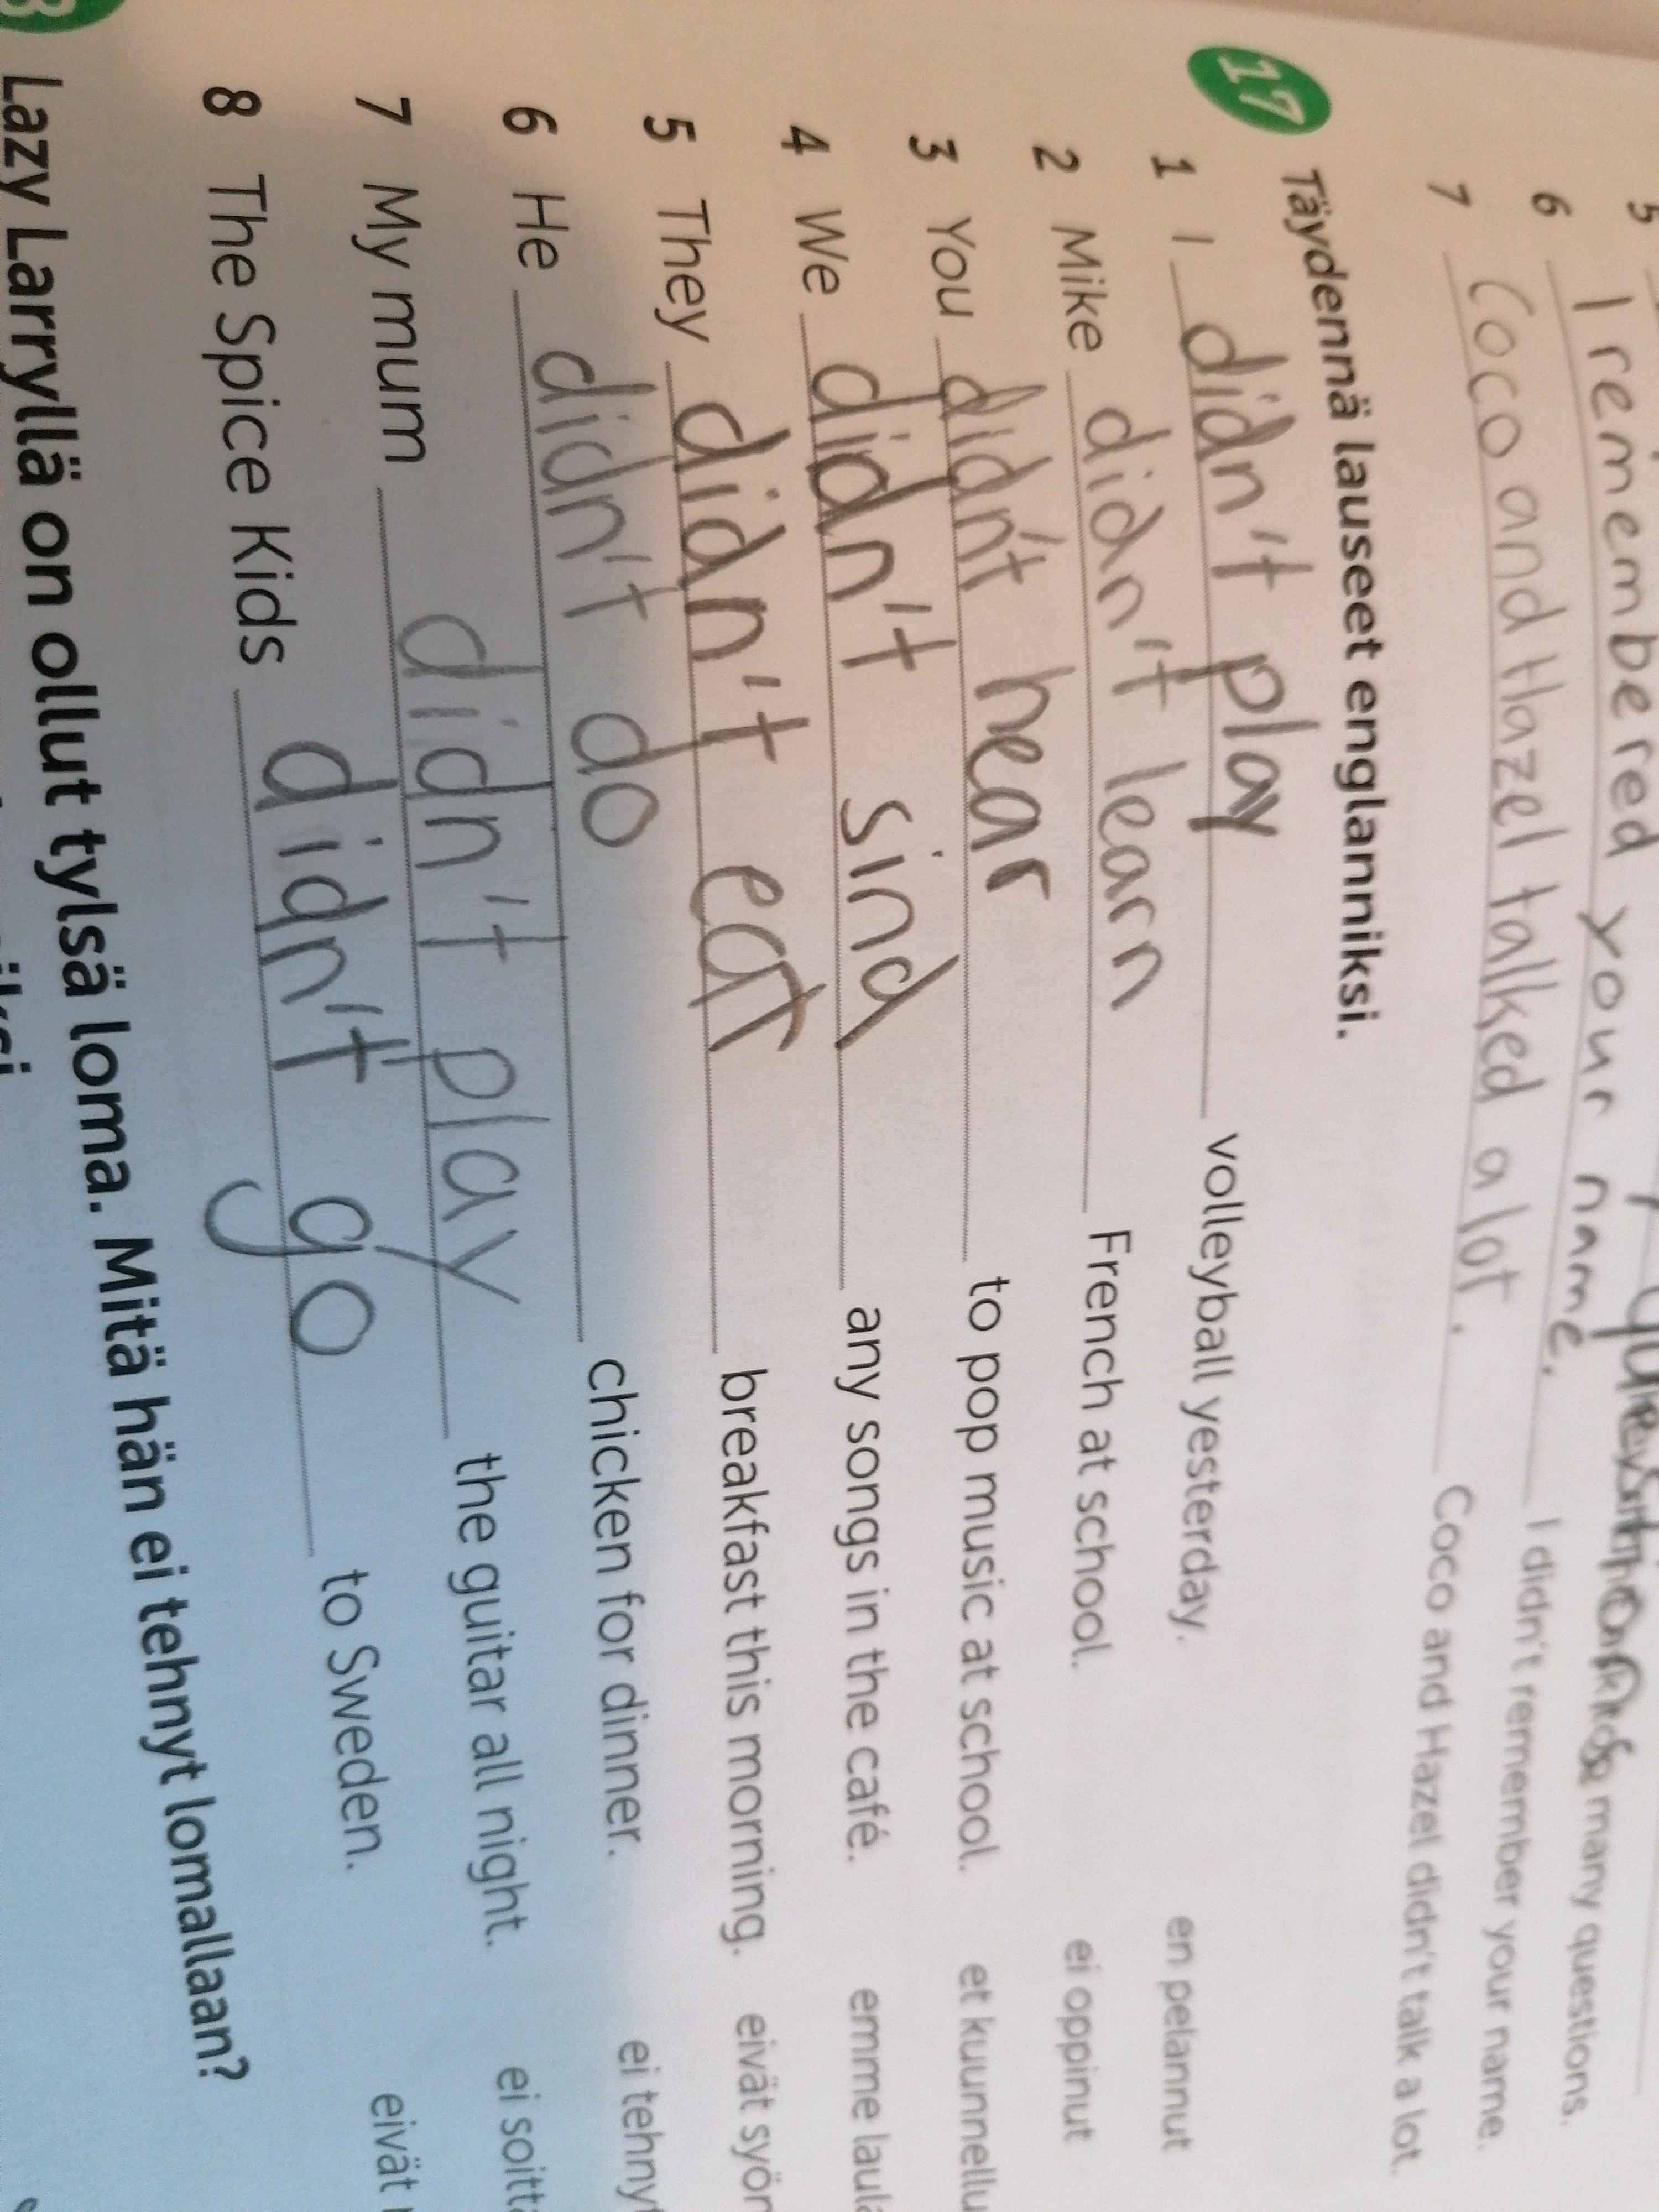 5
many questions.
6 I remembered your name. I didn't remember your name.
7 Coco and Hazel talked a lot. Coco and Hazel didn't talk a lot.
17 Täydennä lauseet englanniksi.
1 I didn't play volleyball yesterday. en pelannut
2 Mike didn't learn French at school. ei oppinut
3 You didn't hear to pop music at school. et kuunnellu
4 We didn't sind any songs in the café. emme laula
5 They didn't eat breakfast this morning. eivät syön
6 He didn't do chicken for dinner. ei tehnyt
7 My mum didn't play the guitar all night. ei soitt
8 The Spice Kids didn't go to Sweden. eivät
Lazy Larryllä on ollut tylsä loma. Mitä hän ei tehnyt lomallaan?